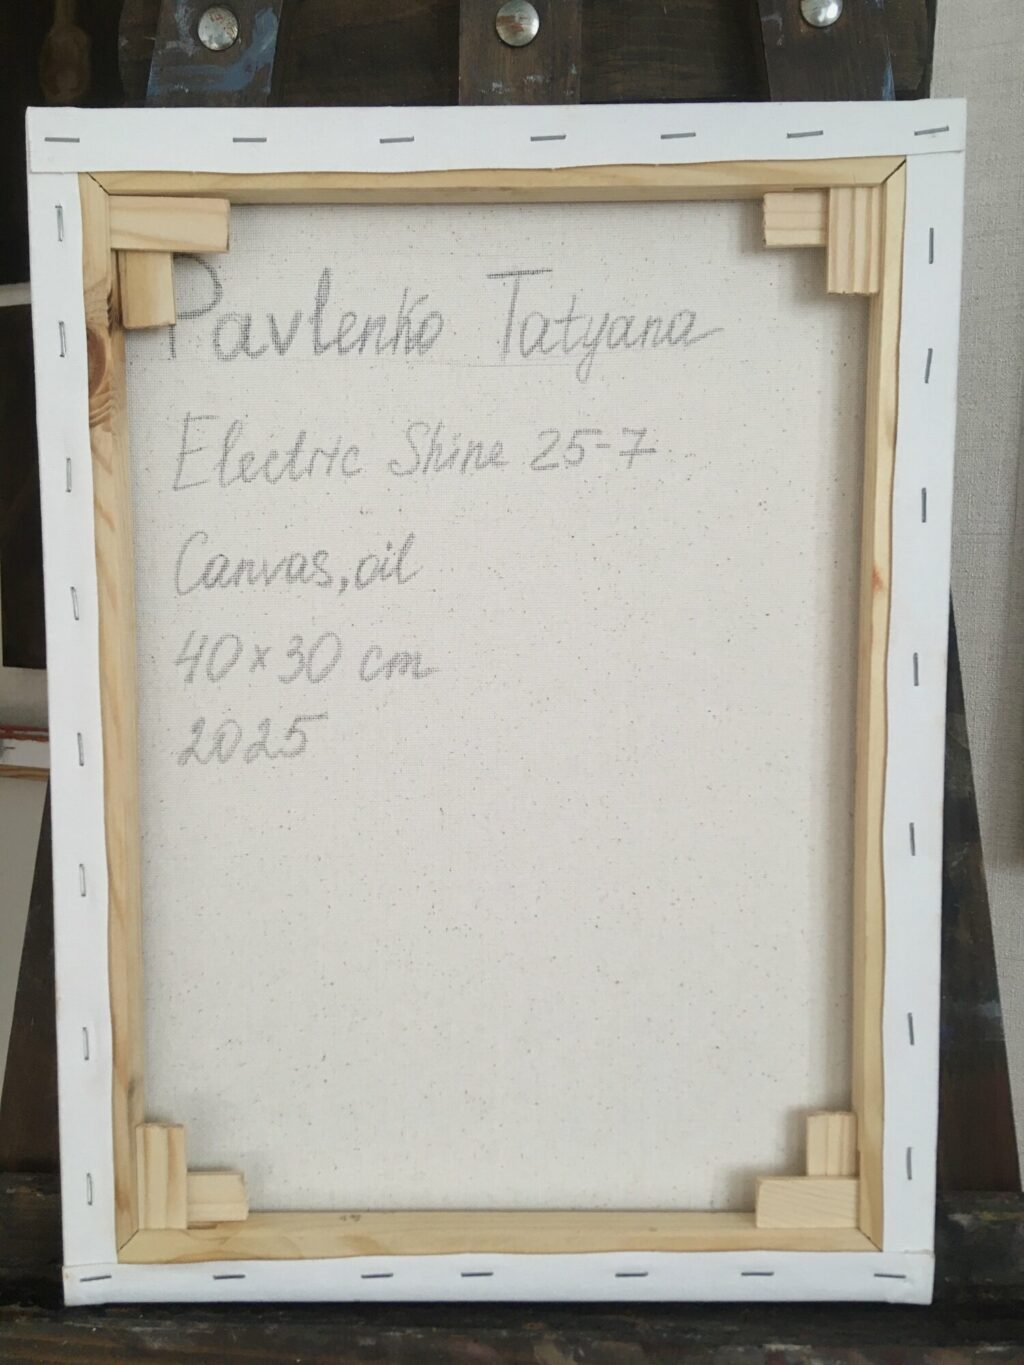 Pavlenko Tatyana
Electric Shine 25-7
Canvas, oil
40×30 cm
2025